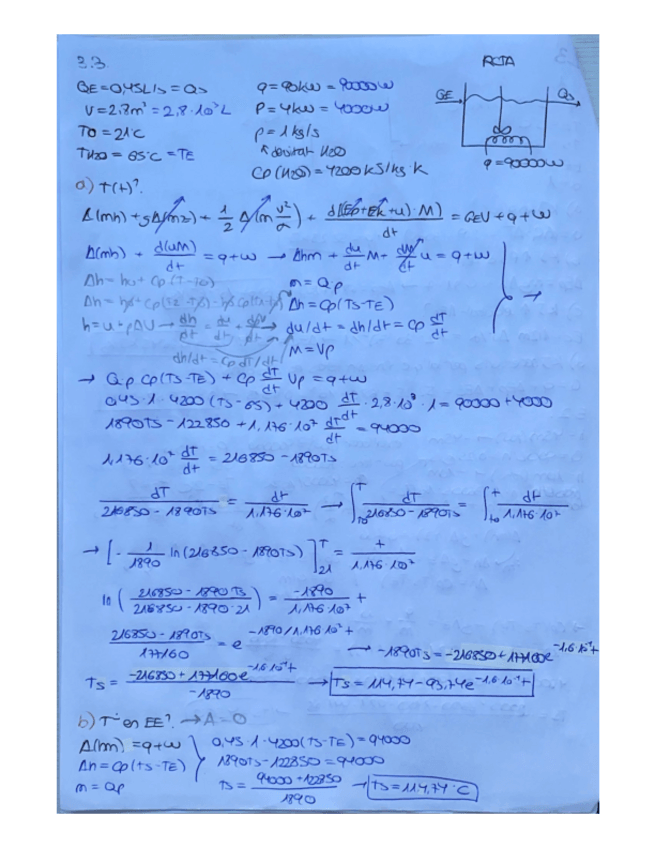 2.3. RCTA
QE = 0,45 L/s = Qs q = 90 kW = 90000 W QE Qs
V = 2,8 m³ = 2,8·10³ L P = 4 kW = 4000 W
T0 = 21°C ρ = 1 kg/s
TH2O = 65°C = TE densitat H2O q = 90000 W
Cp (H2O) = 4200 kJ/kg·K
a) T(t)?
Δ(mh) + gΔ(mz) + 1/2 Δ(m v²/α) + d[(Ep+Ek+u)·M]/dt = GEV + q + W
Δ(mh) + d(uM)/dt = q + w → Δhm + du/dt M + dM/dt u = q + w
m = Qρ
Δh = Cp(Ts-TE) →
h = u + pΔV → dh/dt = du/dt + → du/dt = dh/dt = Cp dT/dt
dh/dt = Cp dT/dt M = Vρ
→ Q ρ Cp(Ts-TE) + Cp dT/dt Vρ = q + w
0,45·1·4200 (Ts-65) + 4200 dT/dt · 2,8·10³ · 1 = 90000 + 4000
1890Ts - 122850 + 1,176·10⁷ dT/dt = 94000
1,176·10⁷ dT/dt = 216850 - 1890Ts
dT / 216850 - 1890Ts = dt / 1,176·10⁷ → ∫ T0 T dT / 216850 - 1890Ts = ∫ t0 t dt / 1,176·10⁷
→ [ - 1/1890 ln (216850 - 1890Ts) ] T 21 = t / 1,176·10⁷
ln ( 216850 - 1890Ts / 216850 - 1890·21 ) = -1890 / 1,176·10⁷ t
216850 - 1890Ts / 177160 = e -1890/1,176·10⁷ t → -1890Ts = -216850 + 177160e -1,6·10⁻⁴t
Ts = -216850 + 177160e -1,6·10⁻⁴t / -1890 → Ts = 114,74 - 93,74e -1,6·10⁻⁴t
b) T en EE? → A = 0
Δ(hm) = q + w 0,45·1·4200 (Ts-TE) = 94000
Δh = Cp(Ts-TE) 1890Ts - 122850 = 94000
m = Qρ Ts = 94000 + 122850 / 1890 → Ts = 114,74°C